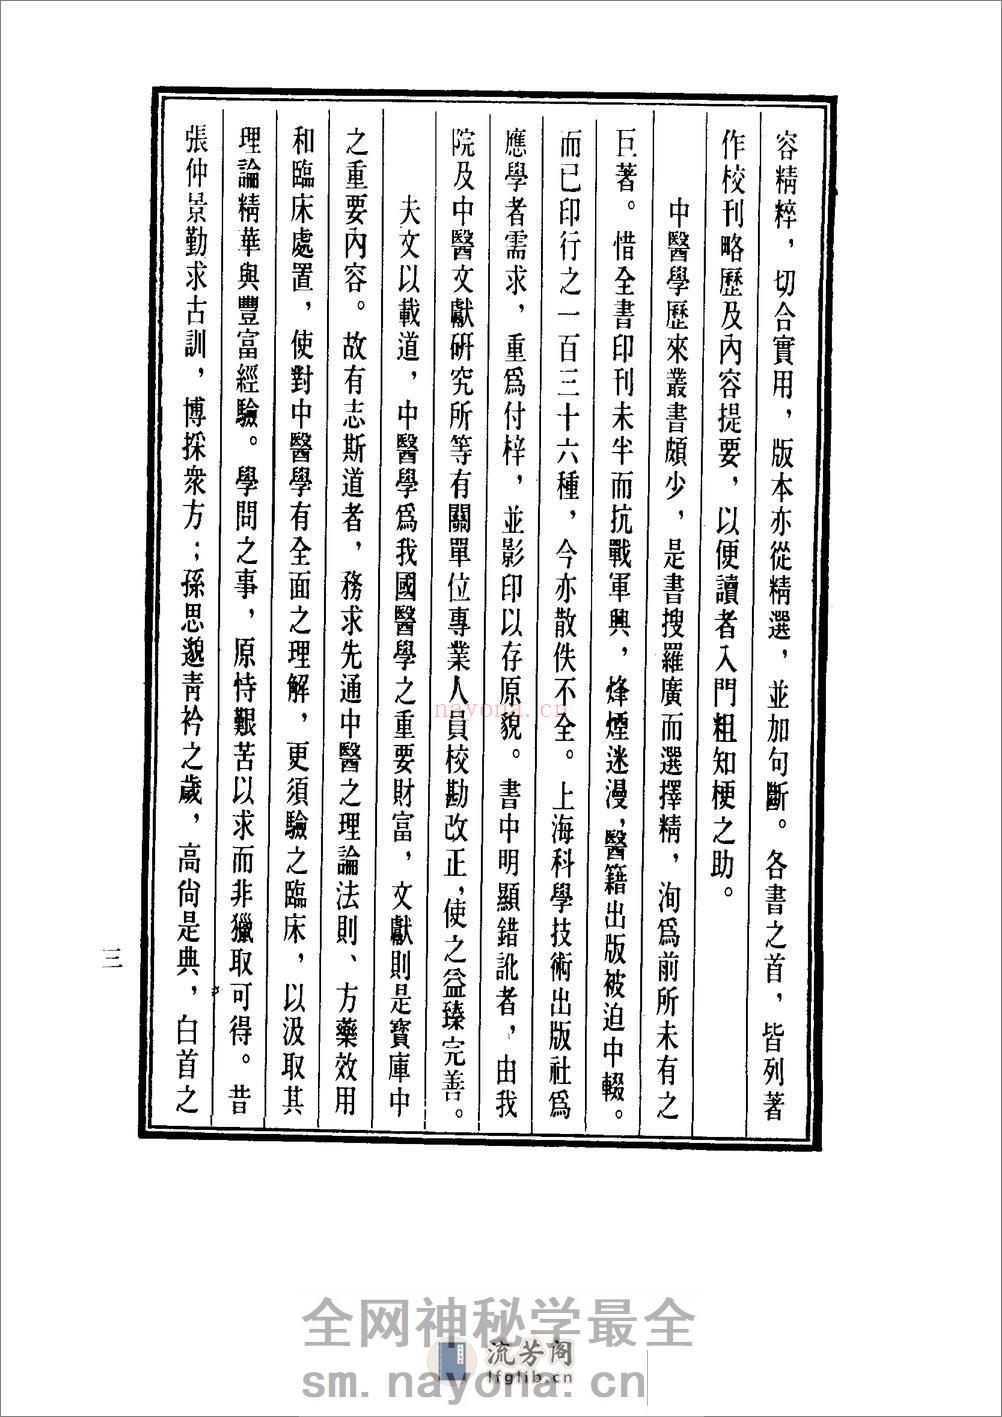 容精粹，切合實用，版本亦從精選，並加句斷。各書之首，皆列著
作校刊略歷及內容提要，以便讀者入門粗知梗之助。
中醫學歷來叢書頗少，是書搜羅廣而選擇精，洵爲前所未有之
巨著。惜全書印刊未半而抗戰軍興，烽煙迷漫，醫籍出版被迫中輟。
而已印行之一百三十六種，今亦散佚不全。上海科學技術出版社爲
應學者需求，重爲付梓，並影印以存原貌。書中明顯錯訛者，由我
院及中醫文獻研究所等有關單位專業人員校勘改正，使之益臻完善。
夫文以載道，中醫學爲我國醫學之重要財富，文獻則是寶庫中
之重要內容。故有志斯道者，務求先通中醫之理論法則、方藥效用
和臨床處置，使對中醫學有全面之理解，更須驗之臨床，以汲取其
理論精華與豐富經驗。學問之事，原恃艱苦以求而非獵取可得。昔
張仲景勤求古訓，博採衆方；孫思邈靑衿之歲，高尙是典，白首之
三
nayona.cn
全网神秘学最全
流芳阁
lfglib.cn
sm.nayona.cn